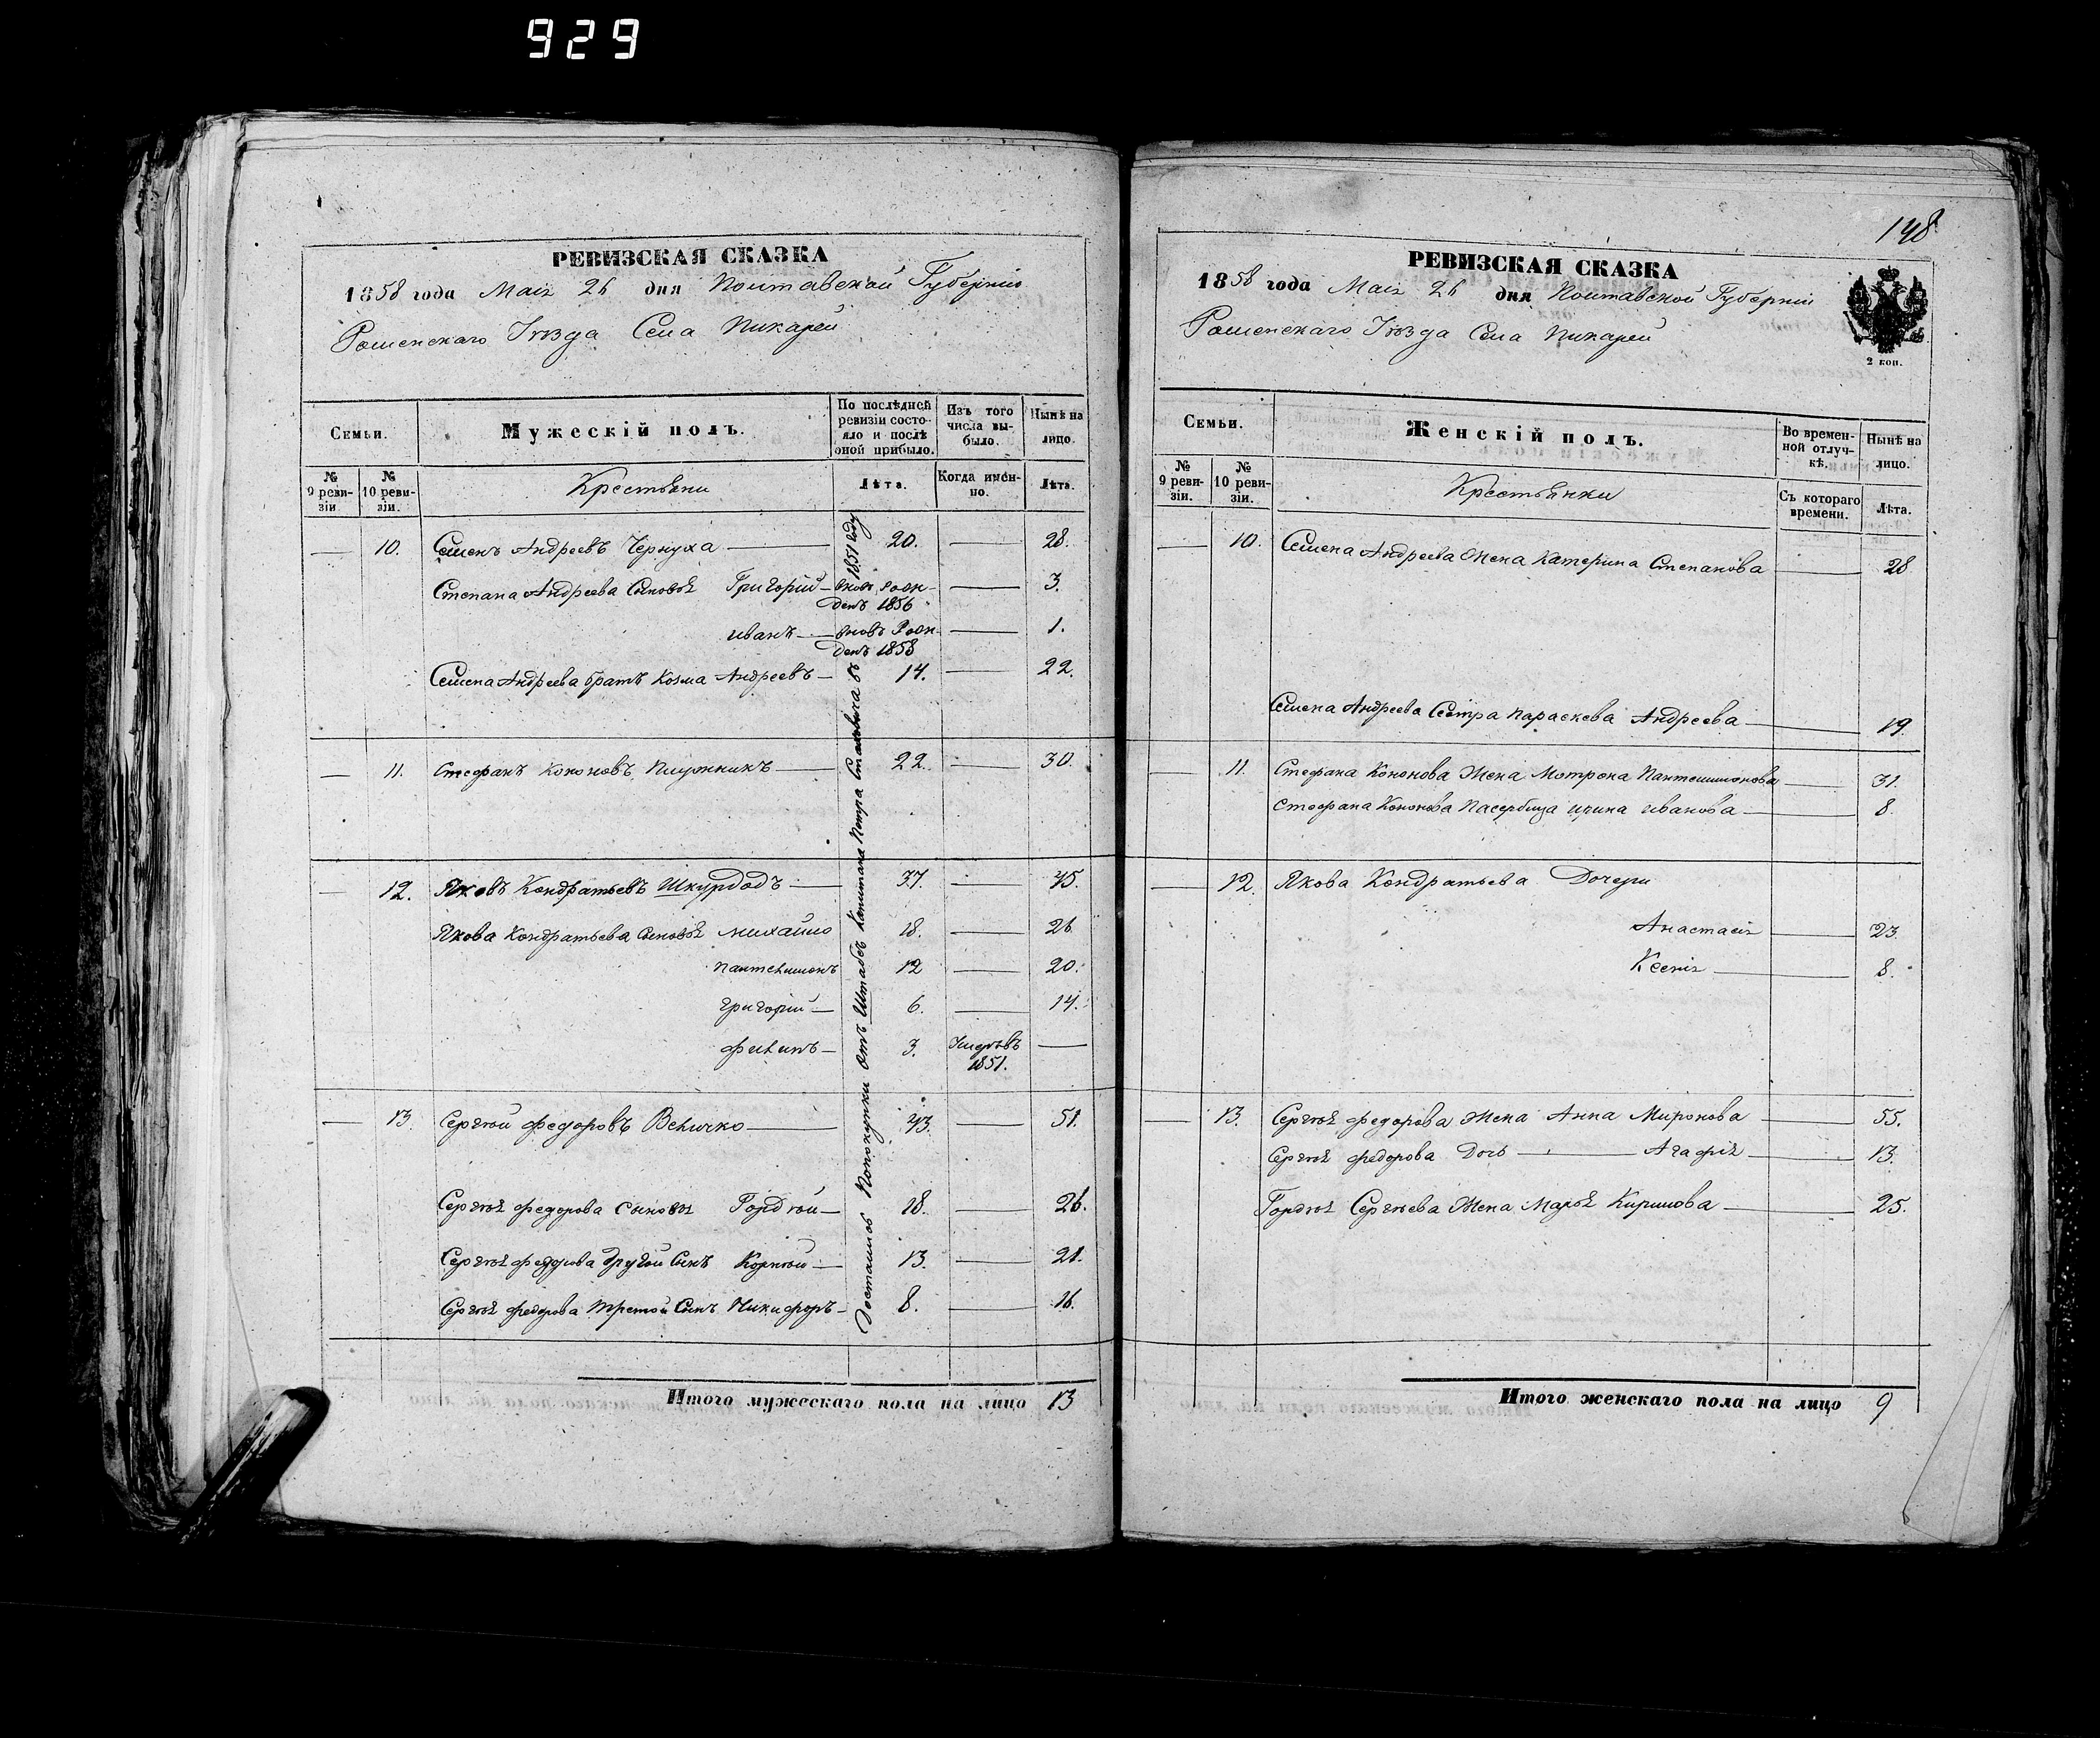 929
РЕВИЗСКАЯ СКАЗКА
1858 года Маія 26 дня Полтавской Губерніи
Роменскаго Уѣзда Села Пикарей
Семьи.
Мужескій полъ.
По послѣдней ревизіи состояло и послѣ оной прибыло.
Изъ того числа выбыло.
Нынѣ на лицо.
№ 9 ревизіи.
№ 10 ревизіи.
Крестьяни
Лѣта.
Когда именно.
Лѣта.
— 10. Семенъ Андреевъ Чернуха — 20. — 28.
Степана Андреева Сыновья Григорій — вновь рожденъ 1856 — 3.
иванъ — вновь Рожденъ 1858 — 1.
Семена Андреева братъ Козма Андреевъ — 14. — 22.
— 11. Стефанъ Кононовъ Плужникъ — 22. — 30.
— 12. Яковъ Кондратьевъ Шкурдодъ — 37. — 45.
Якова Кондратьева сыновья михайло 18. — 26
пантелимонъ 12 — 20.
григорій — 6. — 14.
филипъ — 3. Умеръ въ 1851. —
— 13. Сергѣй федоровъ Величко — 43. — 51.
Сергѣя федорова сыновья Гордѣй — 18. — 26.
Сергѣя федорова другой сынъ Корнѣй — 13. — 21.
Сергѣя федорова третій Сынъ Никифоръ — 8. — 16.
Достались Попокупки отъ Штабсъ Капитана Петра Стаховича въ 1851 году
Итого мужескаго пола на лицо 13
148
РЕВИЗСКАЯ СКАЗКА
1858 года Маія 26 дня Полтавской Губерніи
Роменскаго Уѣзда Села Пикарей
2 коп.
Семьи.
Женскій полъ.
Во временной отлучкѣ.
Нынѣ на лицо.
№ 9 ревизіи.
№ 10 ревизіи.
Крестьянки
Съ котораго времени.
Лѣта.
— 10. Семена Андреева Жена Катерина Степанова — 28
Семена Андреева Сестра параскева Андреева — 19.
— 11. Стефана Кононова Жена Мотрона Пантелимонова — 31.
Стефана Кононова Пасербица ирина иванова — 8.
— 12. Якова Кондратьева Дочери
Анастасія — 23.
Ксенія — 8.
— 13. Сергѣя федорова Жена Анна Миронова — 55.
Сергѣя федорова Дочь — Агафія — 13.
Гордѣя Сергѣева Жена Марья Кирилова — 25.
Итого женскаго пола на лицо 9